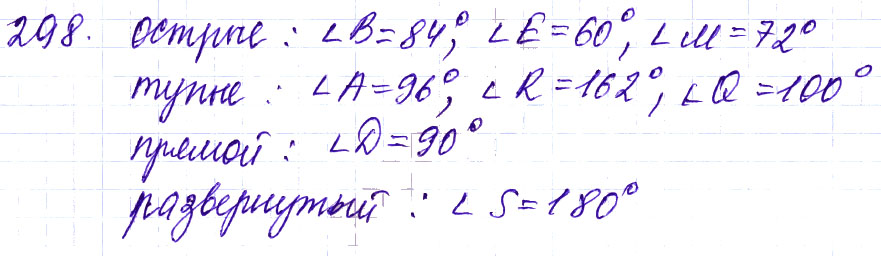 298. острые : ∠B=84°, ∠E=60°, ∠M=72°
тупые : ∠A=96°, ∠R=162°, ∠Q=100°
прямой : ∠D=90°
развернутый : ∠S=180°